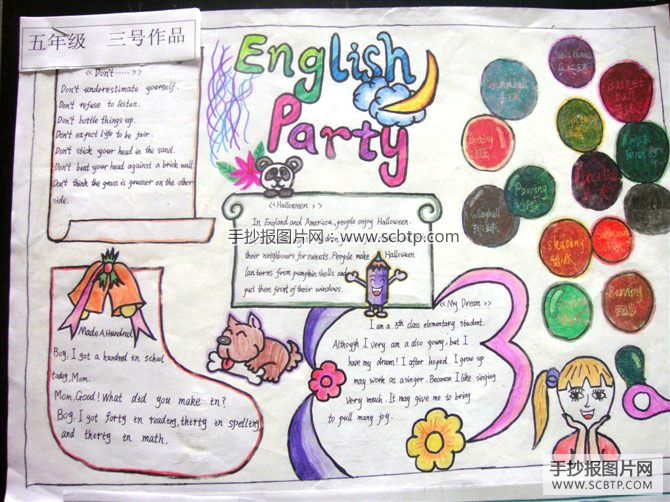 五年级 三号作品
English
Party
<<Don't......>>
Don't underestimate yourself.
Don't refuse to listen.
Don't bottle things up.
Don't expect life to be fair.
Don't stick your head in the sand.
Don't beat your head against a brick wall.
Don't think the grass is greener on the other
side.
<<Halloween>>
In England and America, people enjoy Halloween.
手抄报图片网 www.scbtp.com
their neighbours for sweets. People make Halloween
lanterns from pumpkin shells and
put them front of their windows.
Made A Hundred
Boy. I got a hundred in school
today, Mom.
Mom. Good! What did you make in?
Boy. I got forty in reading, thirty in spelling,
and thirty in math.
<<My Dream>>
I am a 5th class elementary student.
Although I very am a also young, but I
have my dream! I after hoped I grow up
may work as a singer. Because I like singing
very much. It may give me to bring
to pull many joy.
handball
basket
ball
boxing
Rowing
volleyball
排球
skating
Running
手抄报图片网
WWW.SCBTP.COM